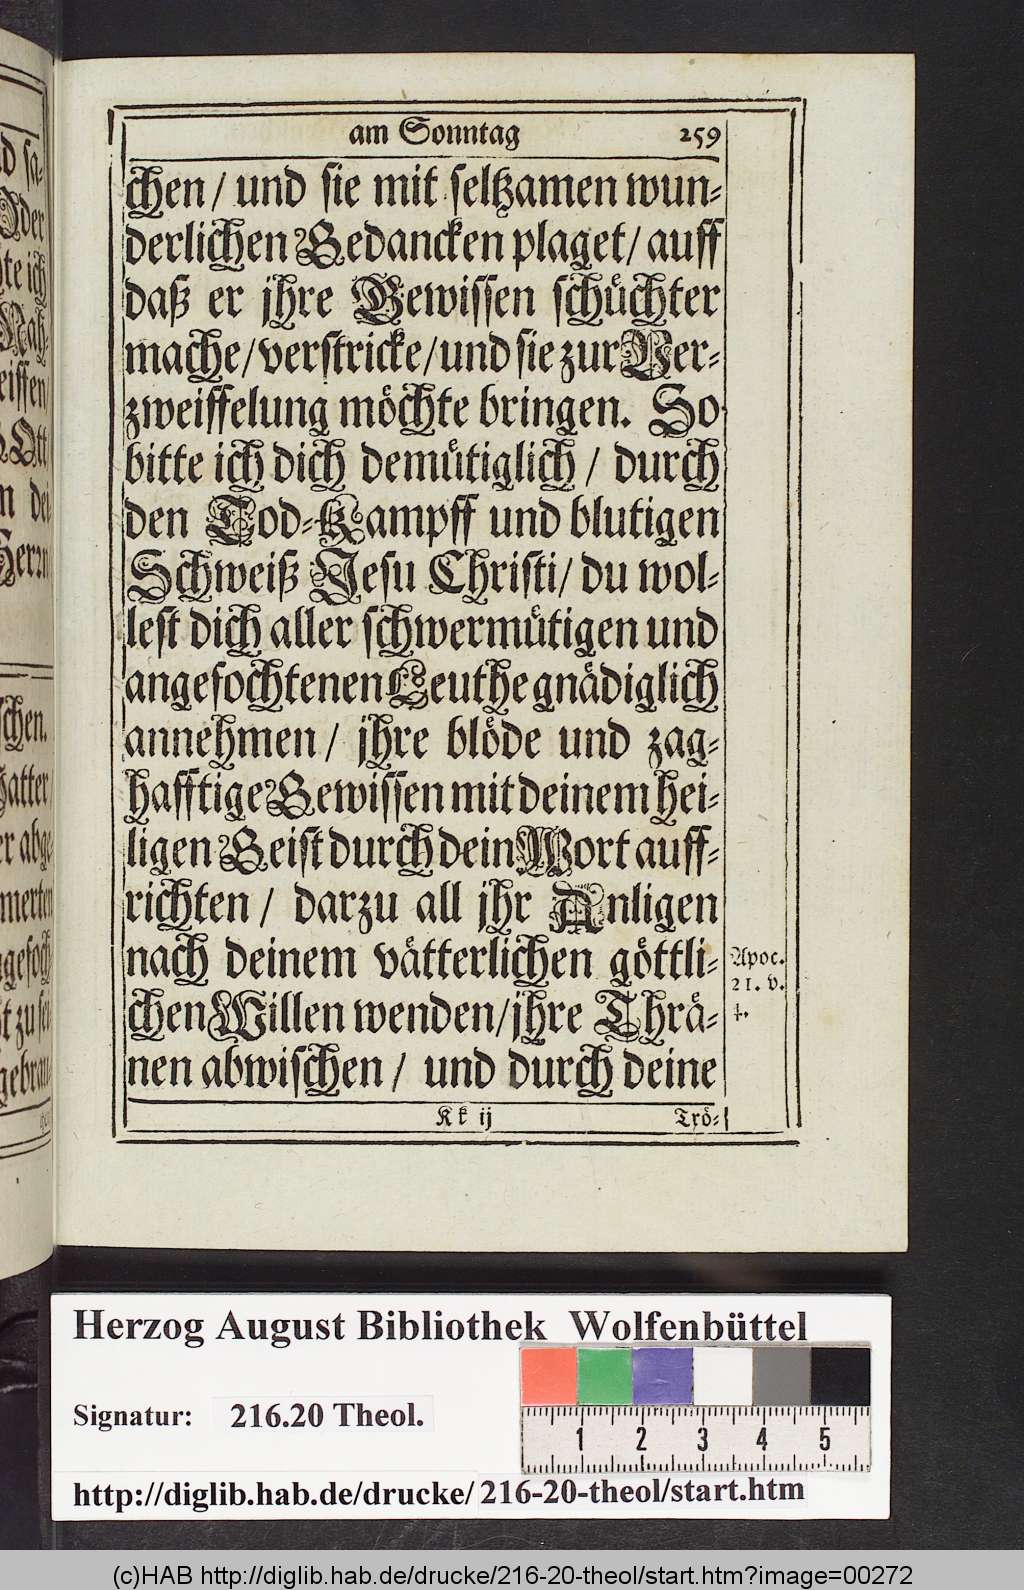 am Sonntag 259
chen / und sie mit seltzamen wun⸗
derlichen Gedancken plaget / auff
daß er jhre Gewissen schüchter
mache / verstricke / und sie zur Ver⸗
zweiffelung möchte bringen. So
bitte ich dich demütiglich / durch
den Tod⸗Kampff und blutigen
Schweiß Jesu Christi / du wol⸗
lest dich aller schwermütigen und
angefochtenen Leuthe gnädiglich
annehmen / jhre blöde und zag⸗
hafftige Gewissen mit deinem hei⸗
ligen Geist durch dein Wort auff⸗
richten / darzu all jhr Anligen
nach deinem vätterlichen göttli⸗
chen Willen wenden / jhre Thrä⸗
nen abwischen / und durch deine
Apoc.
21. v.
4.
Kk ij Trö⸗
Herzog August Bibliothek Wolfenbüttel
Signatur: 216.20 Theol.
1 2 3 4 5
http://diglib.hab.de/drucke/216-20-theol/start.htm
(c)HAB http://diglib.hab.de/drucke/216-20-theol/start.htm?image=00272